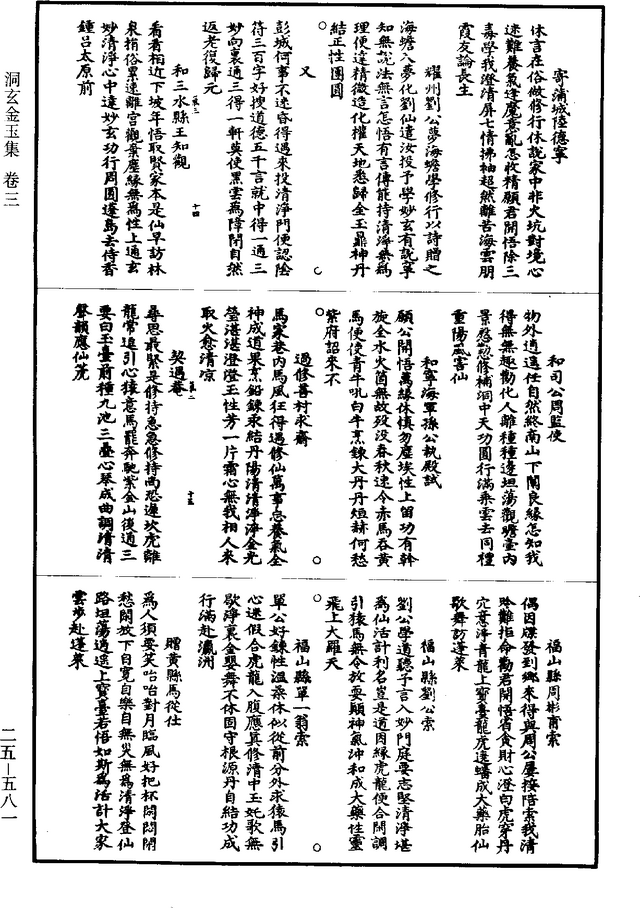 寄蒲城陸德寧
休言在俗做修行休說家中非火坑對境心
迷難養氣逢魔意亂怎收精願君開悟除三
毒學我澄清屏七情拂袖超然離苦海雲朋
霞友論長生
耀州劉公夢海蟾學修行以詩贈之
海蟾入夢化劉仙遣汝投予學妙玄有說寧
知無說法無言怎悟有言傳能持清淨無為
理便達精微造化權天地悉歸金玉鼎神丹
結正性團圓
又
彭城何事不迷昏得遇來投清淨門便認陰
符三百字好搜道德五千言就中得一通三
妙向裏通三得一軒莫使黑雲為障閉自然
返老復歸元
和三水縣王知觀
看看相近下坡年悟取賢家本是仙早訪林
泉捐俗累速離宮觀棄塵緣無為性上通玄
妙清淨心中達妙玄功行周圓蓬島去侍香
鍾呂太原前
和司公周監使
物外逍遙任自然終南山下闡良緣怎知我
得無無趣勸化人離種種邊坦蕩觀瞻臺內
景慇懃修補洞中天功圓行滿乘雲去同禮
重陽風害仙
和寧海軍孫公執殿試
願公開悟萬緣休慎勿塵埃性上留功有幹
旋全水火箇無故歿没春秋速令赤馬吞黃
馬便使青牛吼白牛烹鍊大丹丹烜赫何愁
紫府詔來不
過修善村求齋
馬家巷內馬風狂得遇修仙萬事忘養氣全
神成道果烹鉛鍊汞結丹陽清清淨淨金光
瑩湛湛澄澄玉性芳一片霜心無我相人來
取火愈清凉
契遇庵
尋思最緊是修持急急修持尚恐遲坎虎離
龍常追引心猿意馬罷奔馳紫金山後通三
要白玉臺前種九池三疊心琴成曲調清清
聲韻應仙蓂
福山縣周彬甫索
偶因牒發到鄉來得與周公屢接陪索我清
吟難拒命勸君開悟省貪財心澄白虎穿丹
穴意淨青龍上寶臺龍虎逢蟠成大藥胎仙
歌舞訪蓬萊
福山縣劉公索
劉公學道聽予言入妙門庭要志堅清淨堪
為仙活計利名豈是道因緣虎龍便合閑調
引猿馬無令放耍顛神氣沖和成大藥性靈
飛上大羅天
福山縣單一翁索
單公好鍊性溫柔休似從前分外求猿馬引
心迷假合虎龍入腹應真修清中玉奼歌無
歇淨裏金嬰舞不休固守根源丹自結功成
行滿赴瀛洲
贈黃縣馬從仕
為人須要笑咍咍對月臨風好把杯悶悶閑
愁開放下自寬自樂自無災無為清淨登仙
路坦蕩逍遥上寶臺若悟如斯為活計大家
雲步赴蓬萊
洞玄金玉集 卷三
二五—五八一